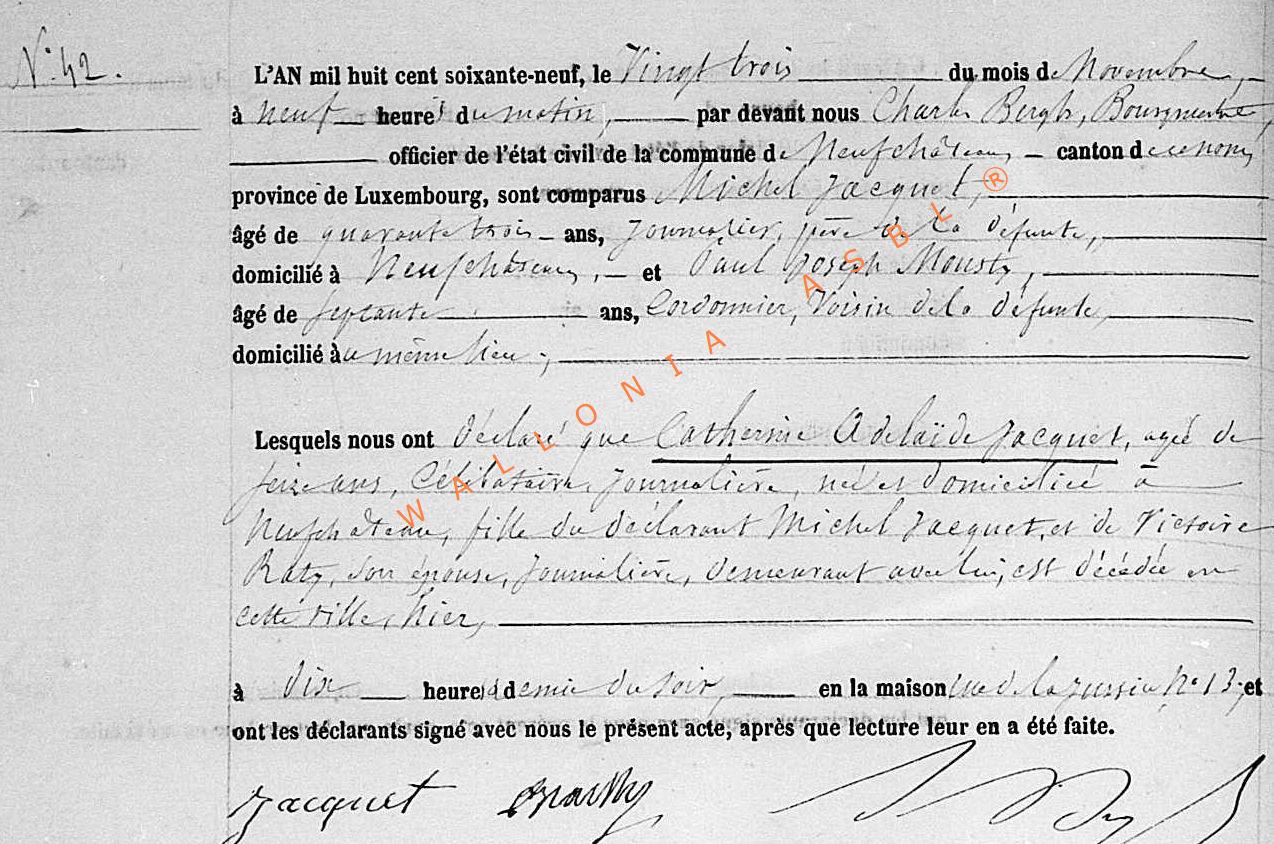 N.º 42.
L'AN mil huit cent soixante-neuf, le Vingt trois du mois de Novembre,
à neuf heures du matin, par devant nous Charles Bergh, Bourgmestre,
officier de l'état civil de la commune de Neufchâteau, canton de ce nom,
province de Luxembourg, sont comparus Michel Jacquet,
âgé de quarante trois ans, Journalier, père de la défunte,
domicilié à Neufchâteau, et Paul Joseph Mousty,
âgé de septante ans, Cordonnier, Voisin de la défunte,
domicilié au même lieu;
WALLONIA ASBL ®
Lesquels nous ont déclaré que Catherine Adelaïde Jacquet, agée de
seize ans, Célibataire, Journalière, née et domiciliée à
Neufchâteau, fille du déclarant Michel Jacquet, et de Victoire
Raty, son épouse, Journalière, demeurant avec lui, est décédée en
cette ville, hier,
à dix heures & demie du soir, en la maison rue de la Nº 13; et
ont les déclarants signé avec nous le présent acte, après que lecture leur en a été faite.
Jacquet